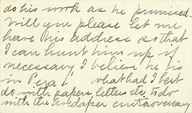 do his work as he promised
Will you please let me
have his address so that
I can hunt him up if
necessary, I believe he is
in Peru. what had I best
do with papers, letters etc. to do
with the controversy